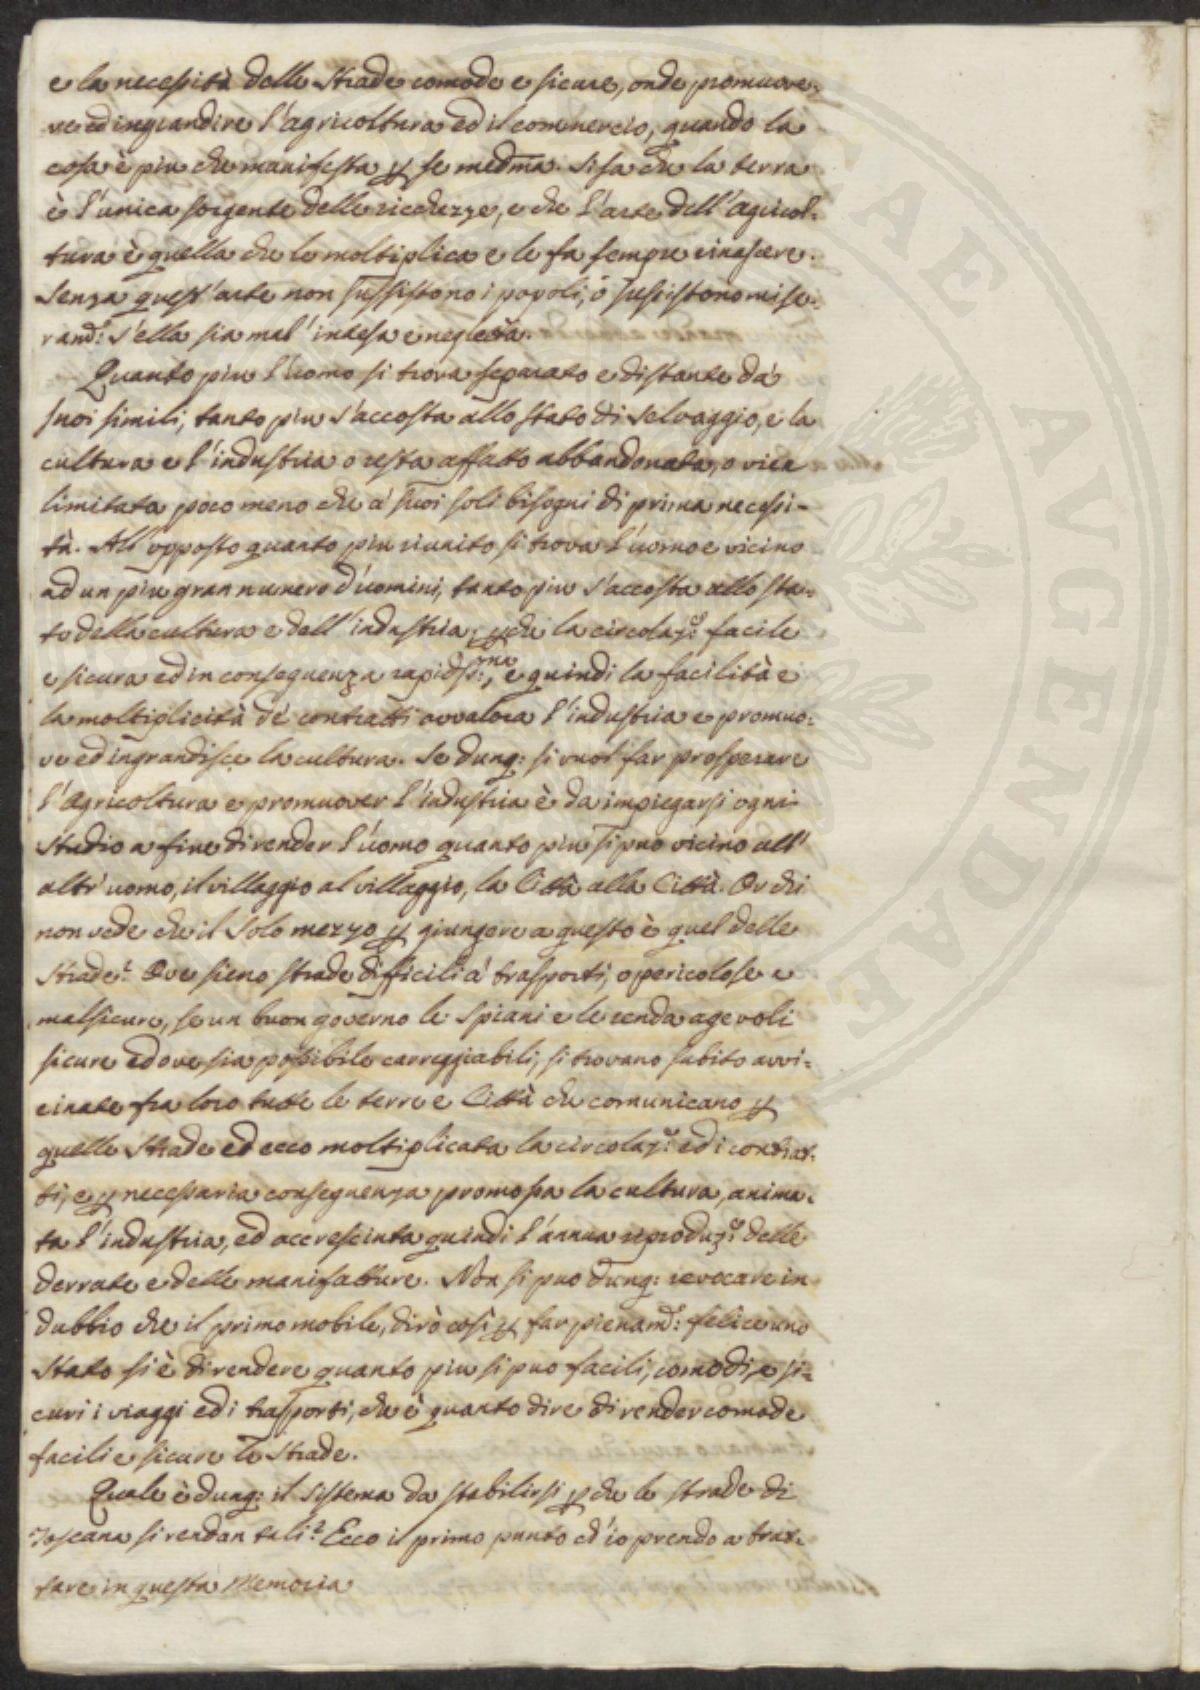 e la necessità delle strade comode e sicure, onde promuove-
re ed ingrandire l'agricoltura ed il commercio, quando la
cosa è piu che manifesta p se medma. Si sa che la terra
è l'unica sorgente delle ricchezze, e che l'arte dell'agricol-
tura è quella che le moltiplica e le fa sempre rinascere.
Senza quest'arte non sussistono i popoli, o sussistono mise-
rand: s'ella sia mal'intesa e negletta.
Quanto piu l'uomo si trova separato e distante da'
suoi simili, tanto piu s'accosta allo stato di selvaggio, e la
cultura e l'industria o resta affatto abbandonata, o vien
limitata poco meno che a' suoi soli bisogni di prima necessi-
tà. All'opposto quanto piu riunito si trova l'uomo e vicino
ad un piu gran numero d'uomini, tanto piu s'accosta allo sta-
to della cultura e dell'industria; pche la circolaze: facile
e sicura ed in conseguenza rapidss:ma, e quindi la facilità e
la moltiplicità de' contratti avvalora l'industria e promuo-
ve ed ingrandisce la cultura. Se dunq: si vuol far prosperare
l'Agricoltura e promuover l'industria è da impiegarsi ogni
studio a fine di render l'uomo quanto piu si puo vicino all'
altr'uomo, il villaggio al villaggio, la Città alla Città. Or chi
non vede che il solo mezzo p giungere a questo è quel delle
strade? Ove sieno strade difficili a' trasporti, o pericolose e
malsicure, se un buon governo le spiani e le renda agevoli
sicure ed ove sia possibile carreggiabili, si trovano subito avvi-
cinate fra loro tutte le terre e Città che comunicano p
quelle strade ed ecco moltiplicata la circolaze: ed i contrat-
ti, e p necessaria conseguenza promossa la cultura, anima-
ta l'industria, ed accresciuta quindi l'annua riproduze: delle
derrate e delle manifatture. Non si puo dunq: revocare in
dubbio che il primo mobile, dirò così p far pienamte: felice uno
stato si è di rendere quanto piu si puo facili, comodi, e si-
curi i viaggi ed i trasporti, che è quanto dire di render comode
facili e sicure le strade.
Quale è dunq: il sistema da stabilirsi pche le strade di
Toscana si rendan tali? Ecco il primo punto ch'io prendo a trat-
tare in questa Memoria